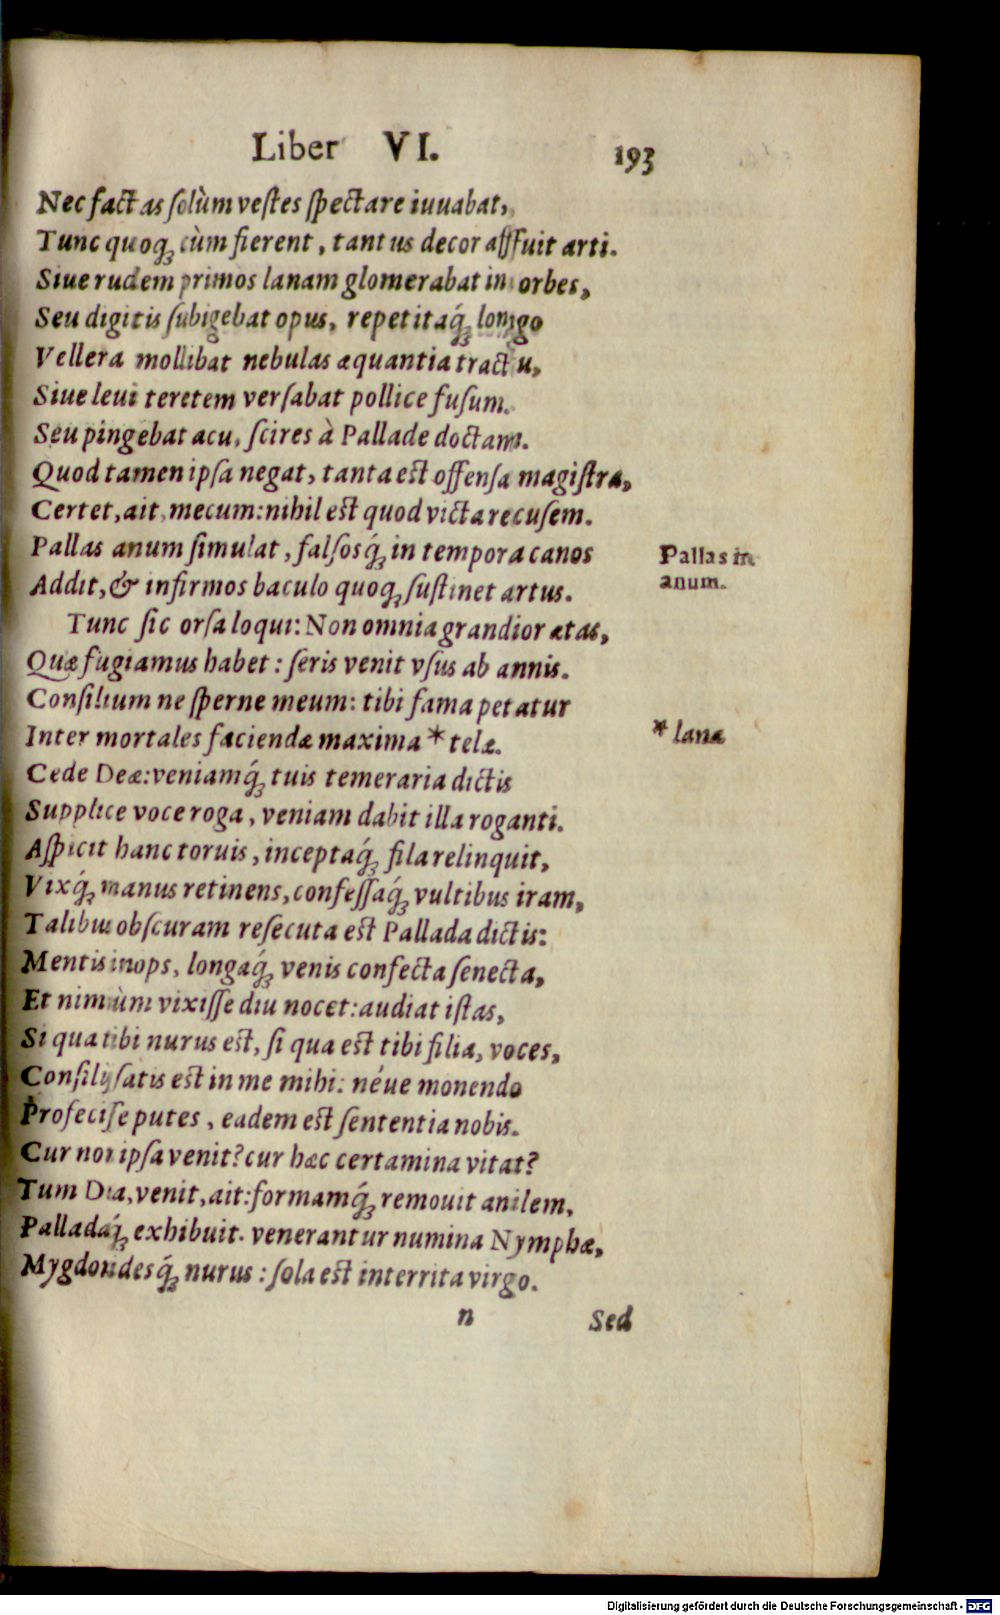 Liber VI. 193
Nec factas solùm vestes spectare iuuabat,
Tunc quoq; cùm fierent, tantus decor affuit arti.
Siue rudem primos lanam glomerabat in orbes,
Seu digitis subigebat opus, repetitaq́; longo
Vellera mollibat nebulas æquantia tractu,
Siue leui teretem versabat pollice fusum.
Seu pingebat acu, scires à Pallade doctam.
Quod tamen ipsa negat, tanta est offensa magistra,
Certet, ait, mecum: nihil est quod victa recusem.
Pallas anum simulat, falsosq́; in tempora canos
Pallas in
anum.
Addit, & infirmos baculo quoq; sustinet artus.
Tunc sic orsa loqui: Non omnia grandior ætas,
Quæ fugiamus habet: seris venit vsus ab annis.
Consilium ne sperne meum: tibi fama petatur
Inter mortales faciendæ maxima * telæ.
* lanæ
Cede Deæ: veniamq́; tuis temeraria dictis
Supplice voce roga, veniam dabit illa roganti.
Aspicit hanc toruis, inceptaq́; fila relinquit,
Vixq́; manus retinens, confessaq́; vultibus iram,
Talibus obscuram resecuta est Pallada dictis:
Mentis inops, longaq́; venis confecta senecta,
Et nimiùm vixisse diu nocet: audiat istas,
Si qua tibi nurus est, si qua est tibi filia, voces,
Consilij satis est in me mihi: néue monendo
Profecisse putes, eadem est sententia nobis.
Cur non ipsa venit? cur hæc certamina vitat?
Tum Dia, venit, ait: formamq́; remouit anilem,
Palladaq́; exhibuit. venerantur numina Nymphæ,
Mygdonidesq́; nurus: sola est interrita virgo.
n Sed
Digitalisierung gefördert durch die Deutsche Forschungsgemeinschaft - DFG